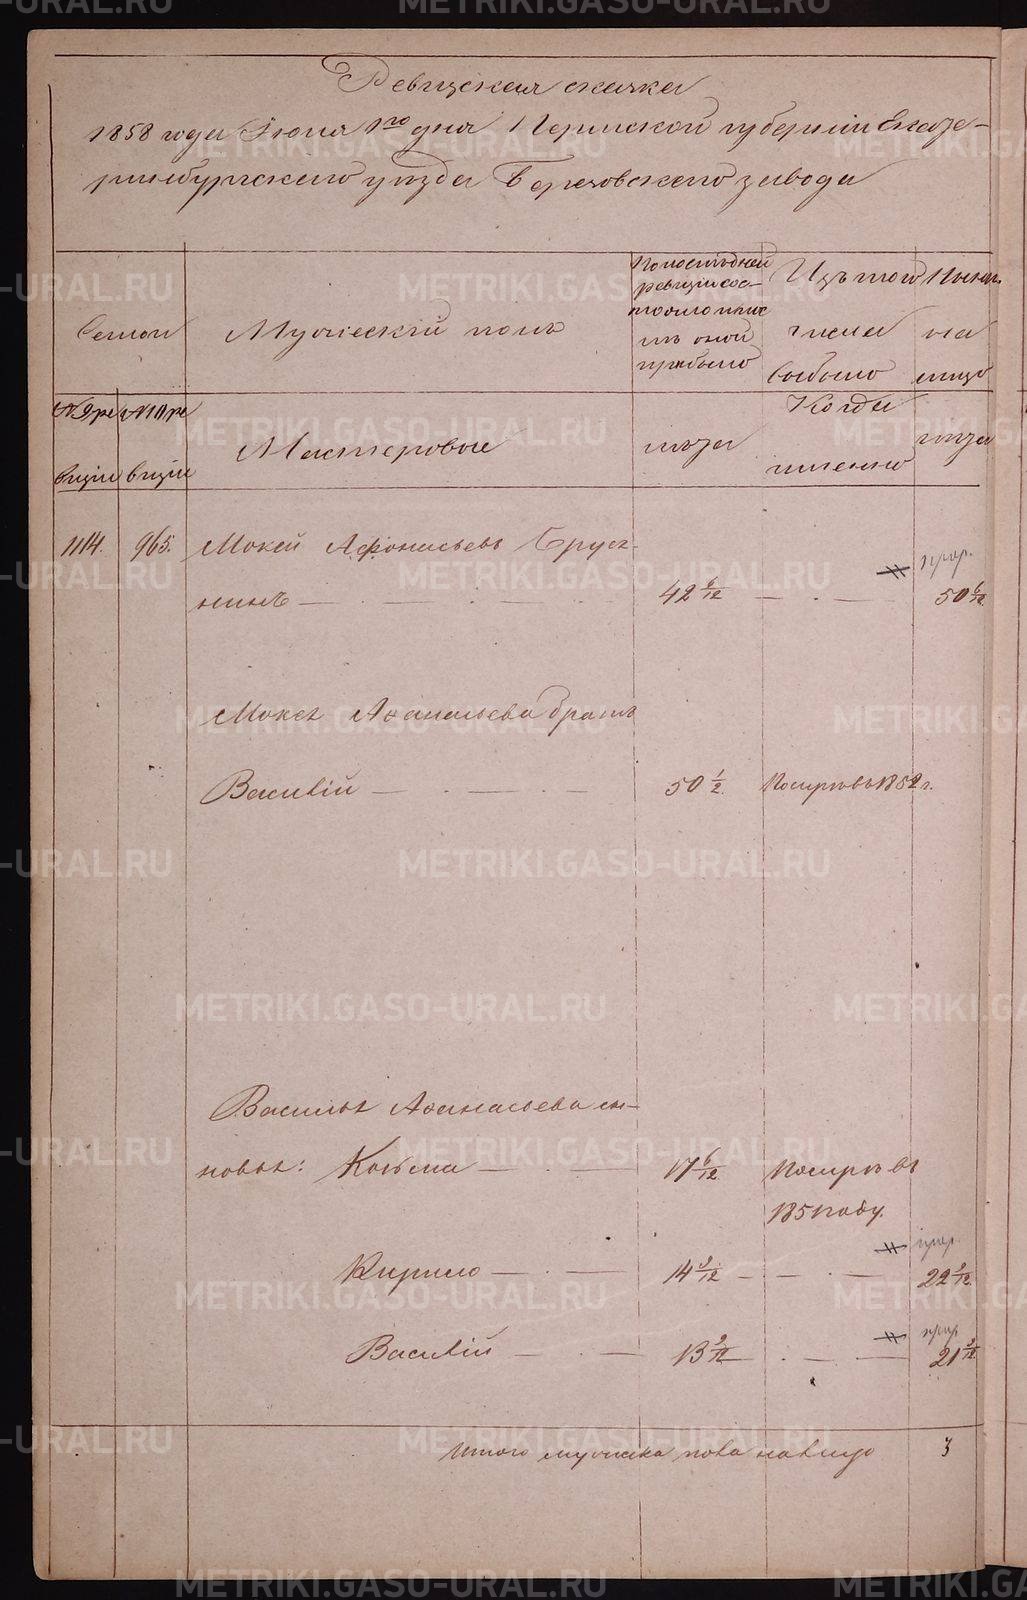 Ревизская сказка
1858 года Июня 1го дня Пермской губернии Екате-
ринбургскаго уезда Березовскаго завода
Семьи
Мужескій полъ
По последней
ревизіи сос-
тояло и пос-
ле оной
прибыло
Изъ того
числа
выбыло
Ныне
на
лицо
№ 9 ре
визіи
№ 10 ре
визіи
Мастеровые
лета
Когда
именно
лета
1114. 965. Мокей Афонасьевъ Брус-
прир.
нинъ 42 6/12 50 6/12
Мокея Аѳанасьева братъ
Василій 50 1/2 Помиръ въ 1852 г.
Василья Аѳанасьева сы-
новья: Козьма 17 6/12 Помиръ въ
1851 году.
прир.
Кирило 14 3/12 22 3/12
прир
Василій 13 2/12 21 2/12
Итого мужеска пола налицо 3
METRIKI.GASO-URAL.RU